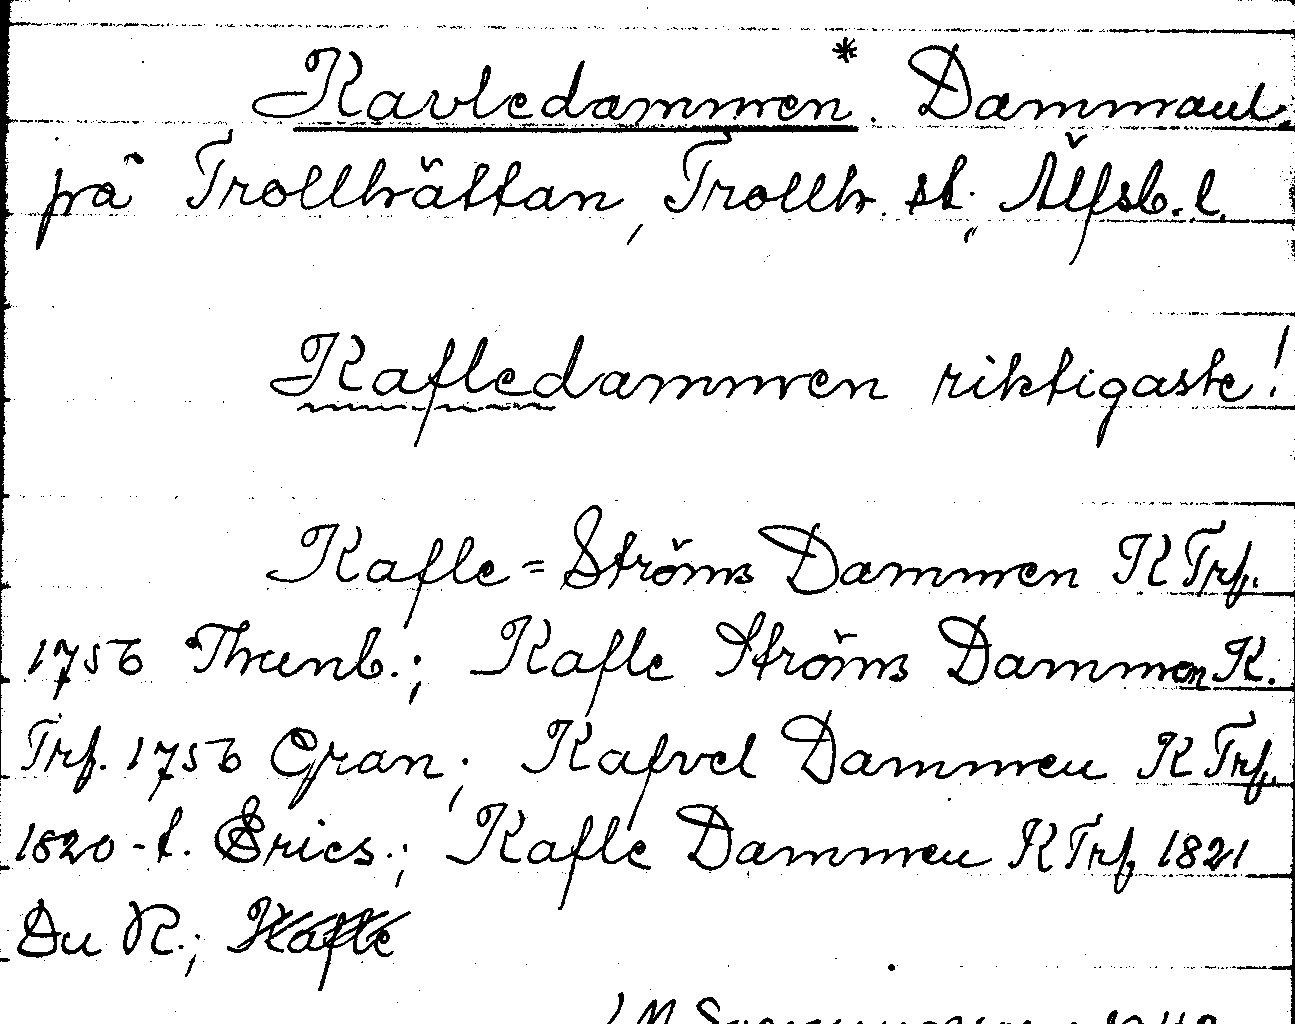 Kavledammen*. Dammaul.
på Trollhättan, Trollh. st., Älfsb. l.
Kafledammen riktigaste!
Kafle=Ströms Dammen K Trf.
1756 Thunb.; Kafle Ströms Dammen K.
Trf. 1756 Gran; Kafvel Dammen K Trf.
1820-t. Erics.; Kafle Dammen K Trf. 1821
Du R.; Kafle